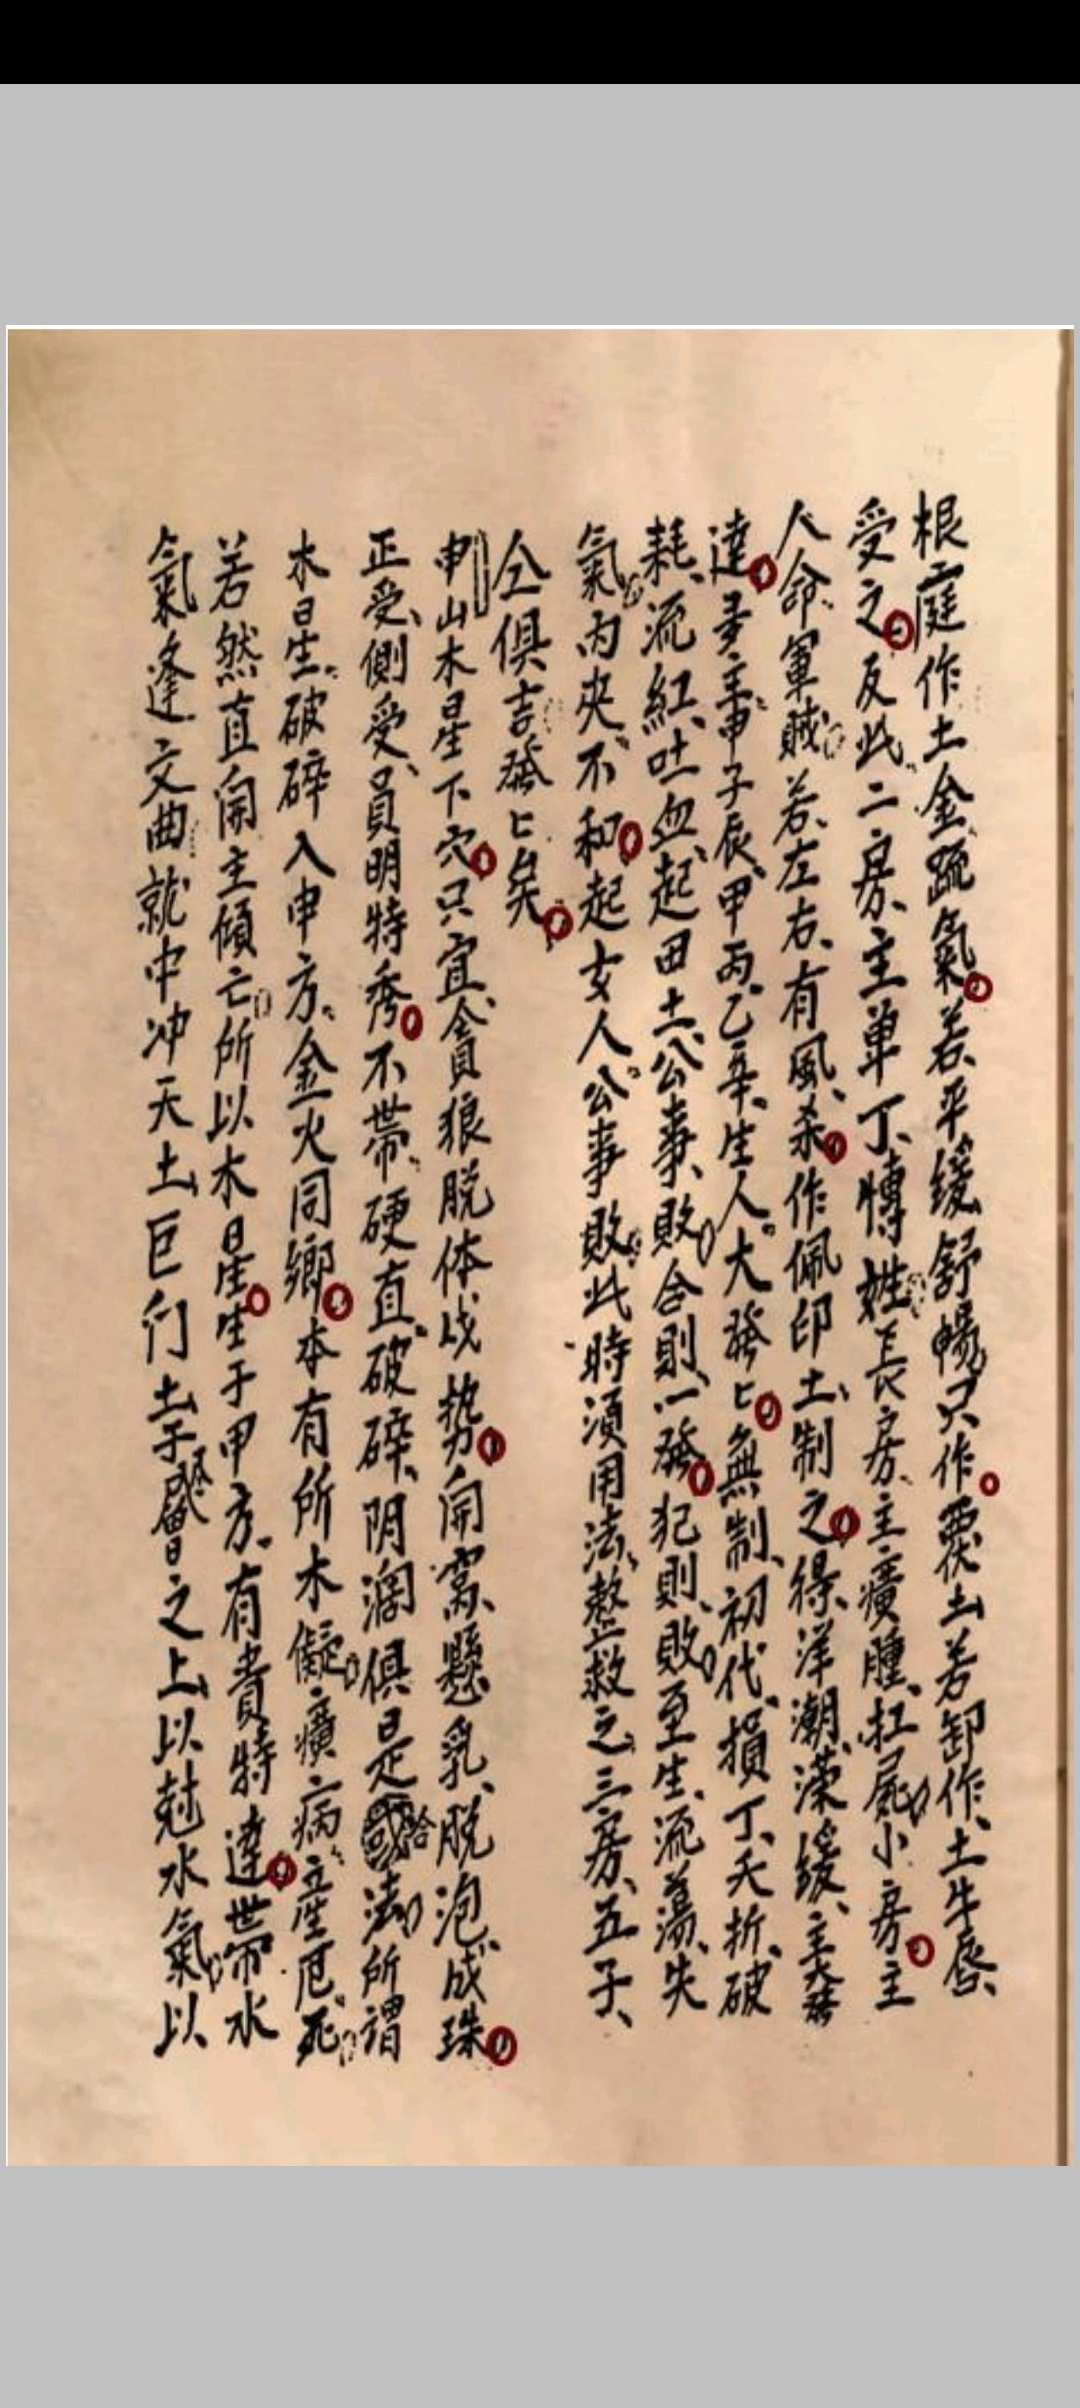 根庭作土金疏氣若平緩舒暢只作覆土若卸作土牛唇
受之反此二房主單丁轉姓長房主癀腫扛屍小房主
人命軍賊若左右有風杀作佩印土制之得洋潮濚緩主發
達主申子辰甲丙乙辛生人大發匕無制初代損丁夭折破
耗流紅吐血起田土公事敗合則一發犯則敗至生流蕩失
氣內夾不和起女人公事敗此時須用法整救之三房五子
仝俱吉發匕矣
申山木星下穴只宜貪狼脫体成势開窩懸乳脫泡成珠
正受側受員明特秀不帶硬直破碎阴濶俱是法所謂
木星破碎入申方金火同鄉本有所木癀病產厄死
若然直開主傾亡所以木星生于甲方有貴特達帶水
氣逢文曲就中冲天土巨门土于之上以尅水氣以